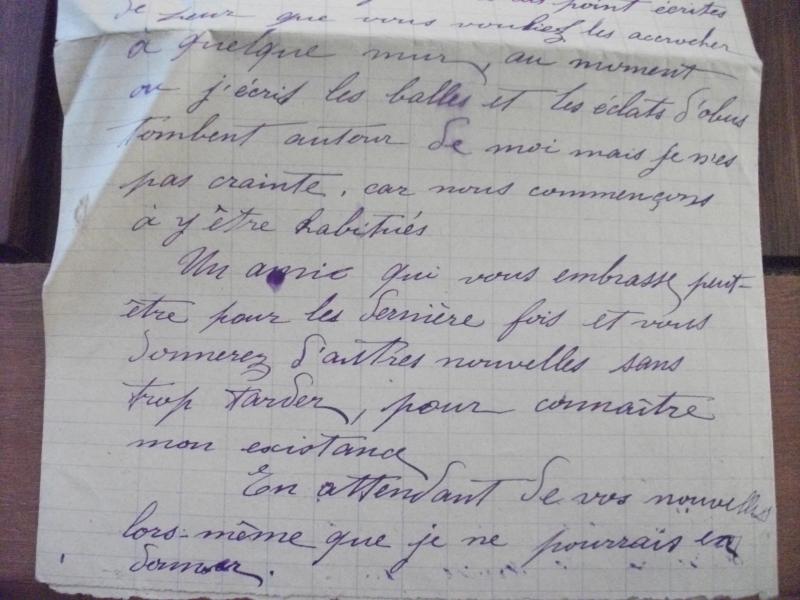 pas point écrites
de peur que vous vouliez les accrocher
à quelque mur, au moment
ou j'écris les balles et les éclats d'obus
tombent autour de moi mais je n'es
pas crainte, car nous commençons
à y être habitués
Un amie qui vous embrasse peut-
être pour les dernière fois et vous
donnerez d'autres nouvelles sans
trop tarder, pour connaître
mon existance
En attendant de vos nouvelles
lors-même que je ne pourrais en
donner.